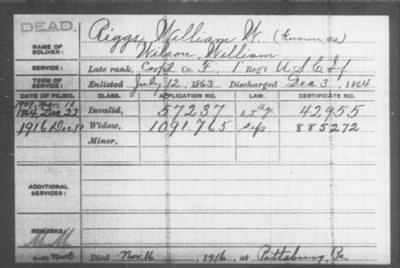 DEAD.
NAME OF SOLDIER: Riggs, William W. (Known as)
Wilson, William
SERVICE: Late rank, Corp'l Co. F, 1 Reg't U.S.C. Inf
TERM OF SERVICE: Enlisted July 12, 1863 Discharged Dec 3, 1864
DATE OF FILING. CLASS. APPLICATION NO. LAW. CERTIFICATE NO.
1864, Dec 27 Invalid, 57237 42955
1916 Dec 1 Widow, 1091.765 885272
Minor,
ADDITIONAL SERVICES:
REMARKS:
Died Nov. 16, 1916, at Pittsburg, Pa.